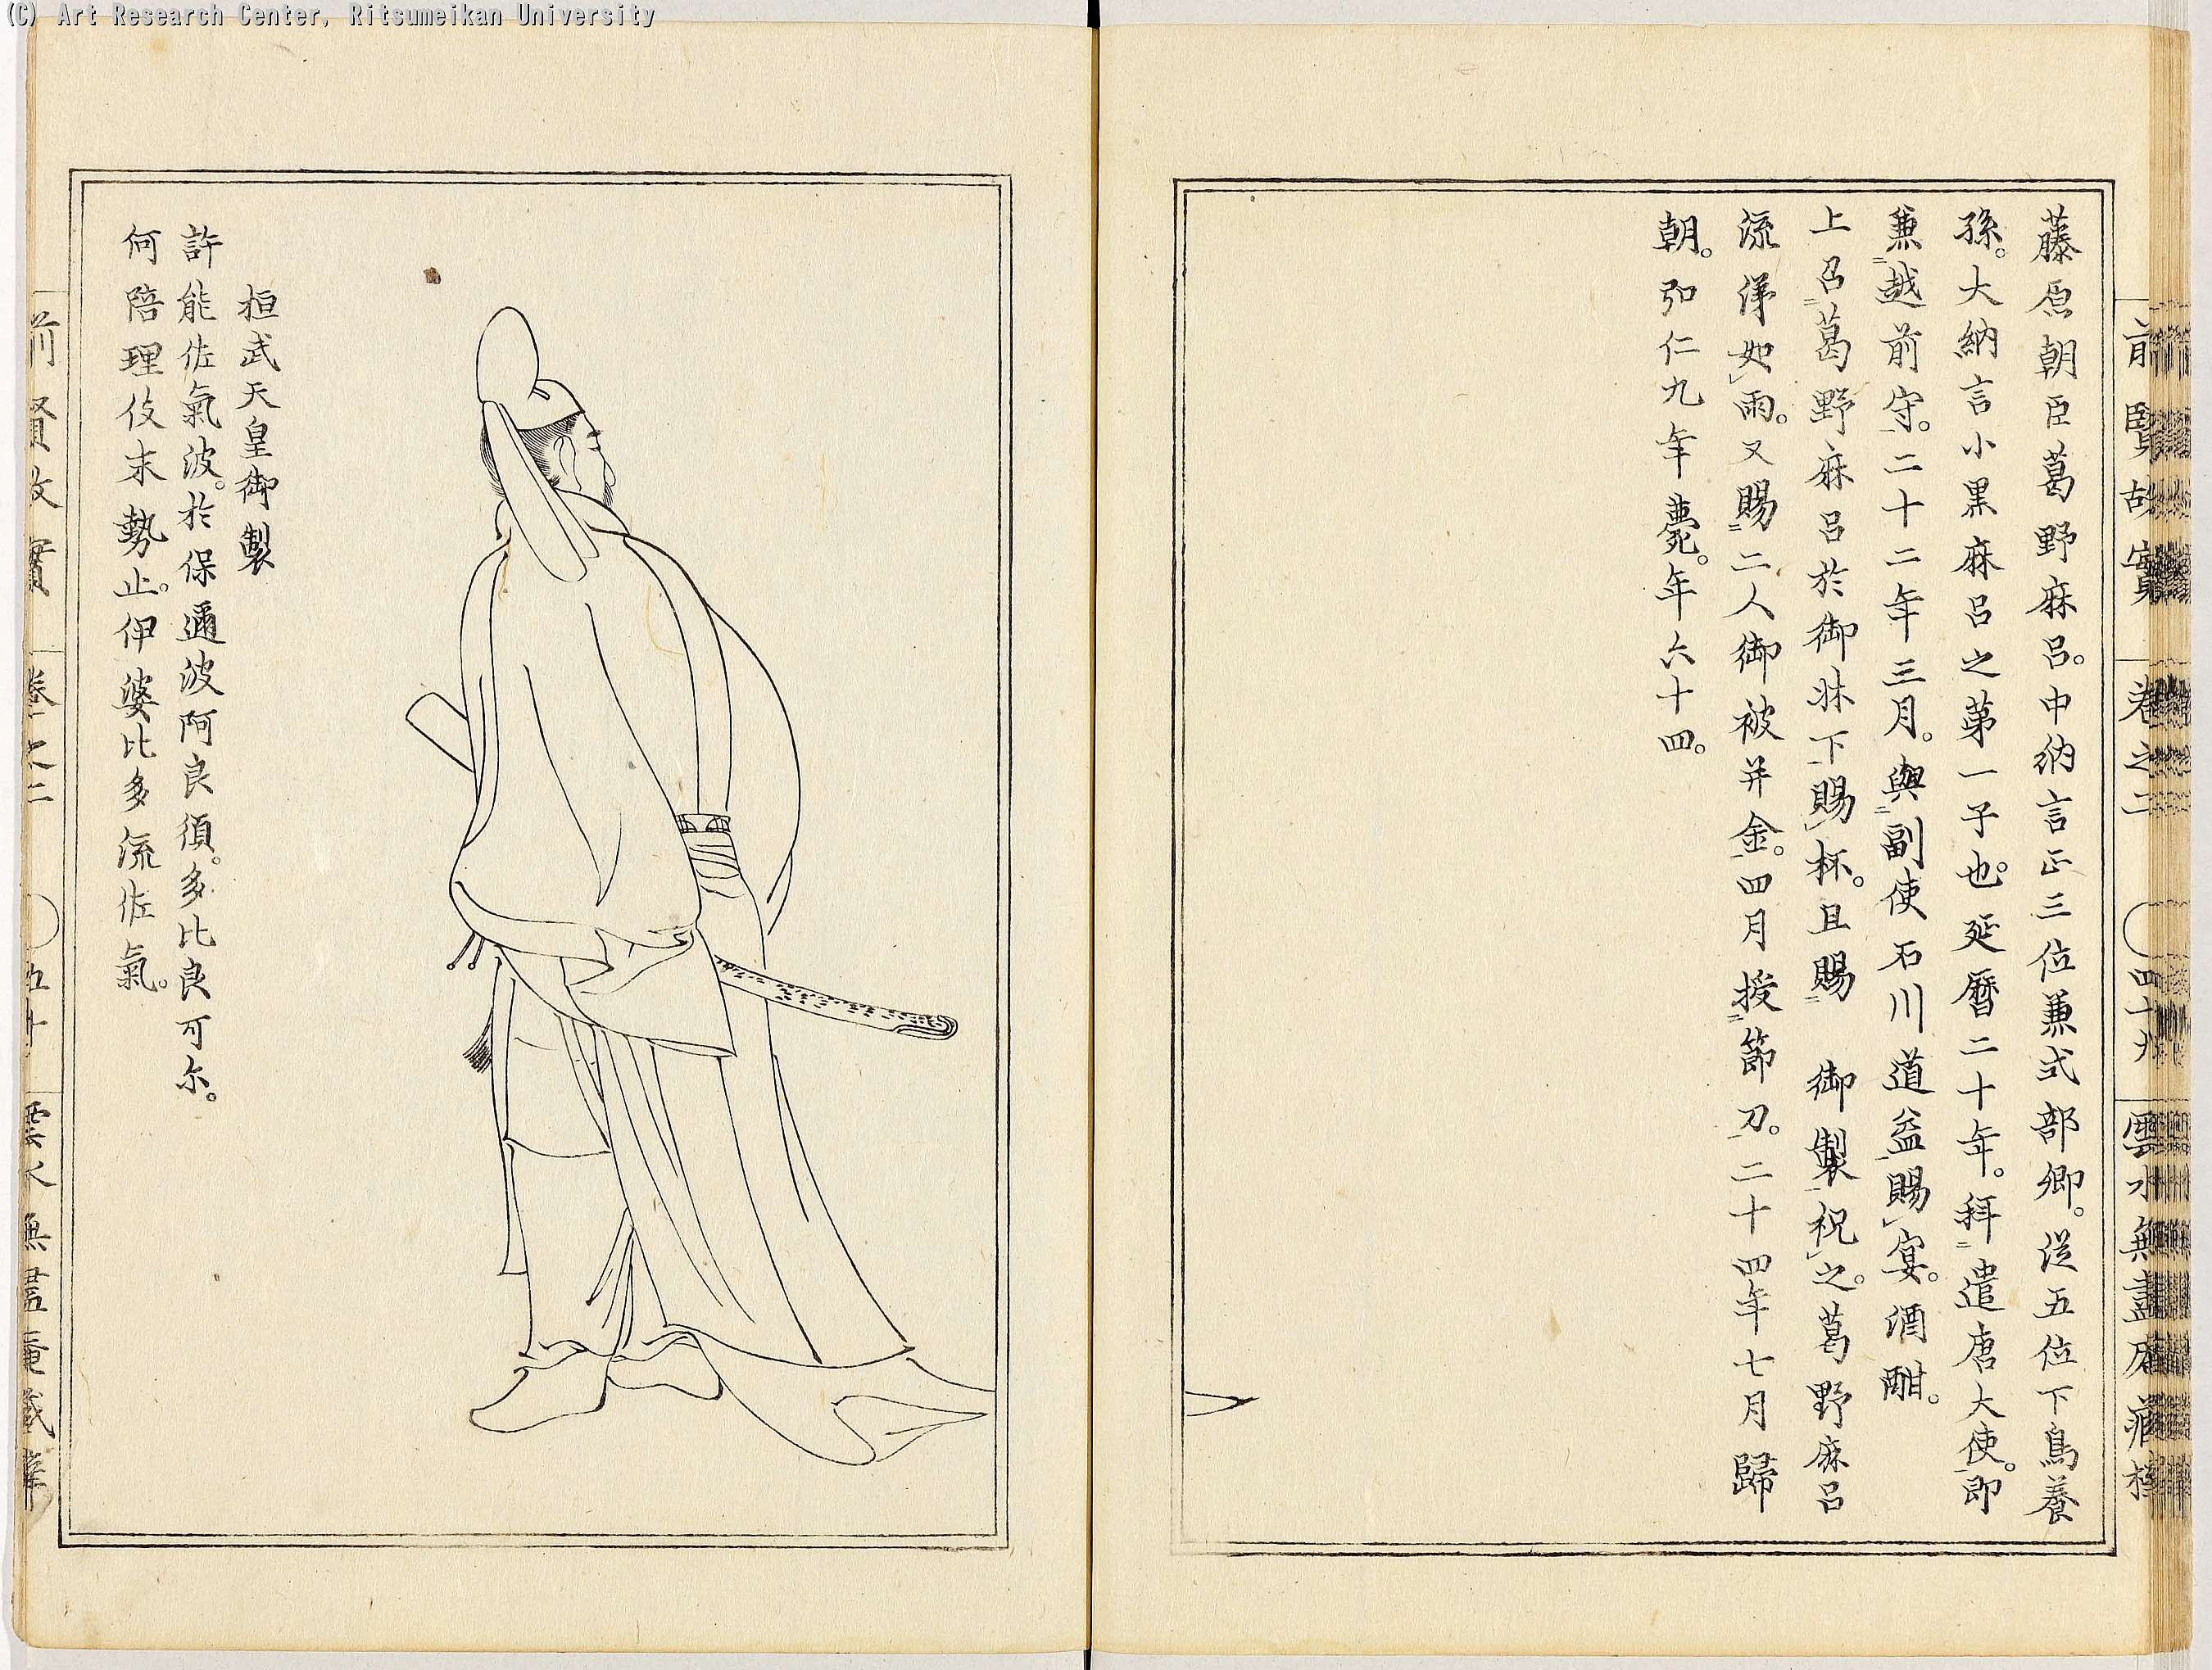 (C) Art Research Center, Ritsumeikan University
前賢故實 卷之二 雲水無盡庵藏
藤原朝臣葛野麻呂。中納言正三位兼式部卿。從五位下鳥養
孫。大納言小黒麻呂之第一子也。延曆二十年。拜遣唐大使。即
兼越前守。二十二年三月。與副使石川道益賜宴。酒酣。
上召葛野麻呂於御牀下賜杯。且賜 御製祝之。葛野麻呂
流涕如雨。又賜二人御被并金。四月授節刀。二十四年七月歸
朝。弘仁九年薨。年六十四。
桓武天皇御製
許能佐氣波。於保邇波阿良須。多比良可尓。
何陪理伎末勢止。伊婆比多流佐氣。
前賢故實 卷之二 五十 雲水無盡庵藏